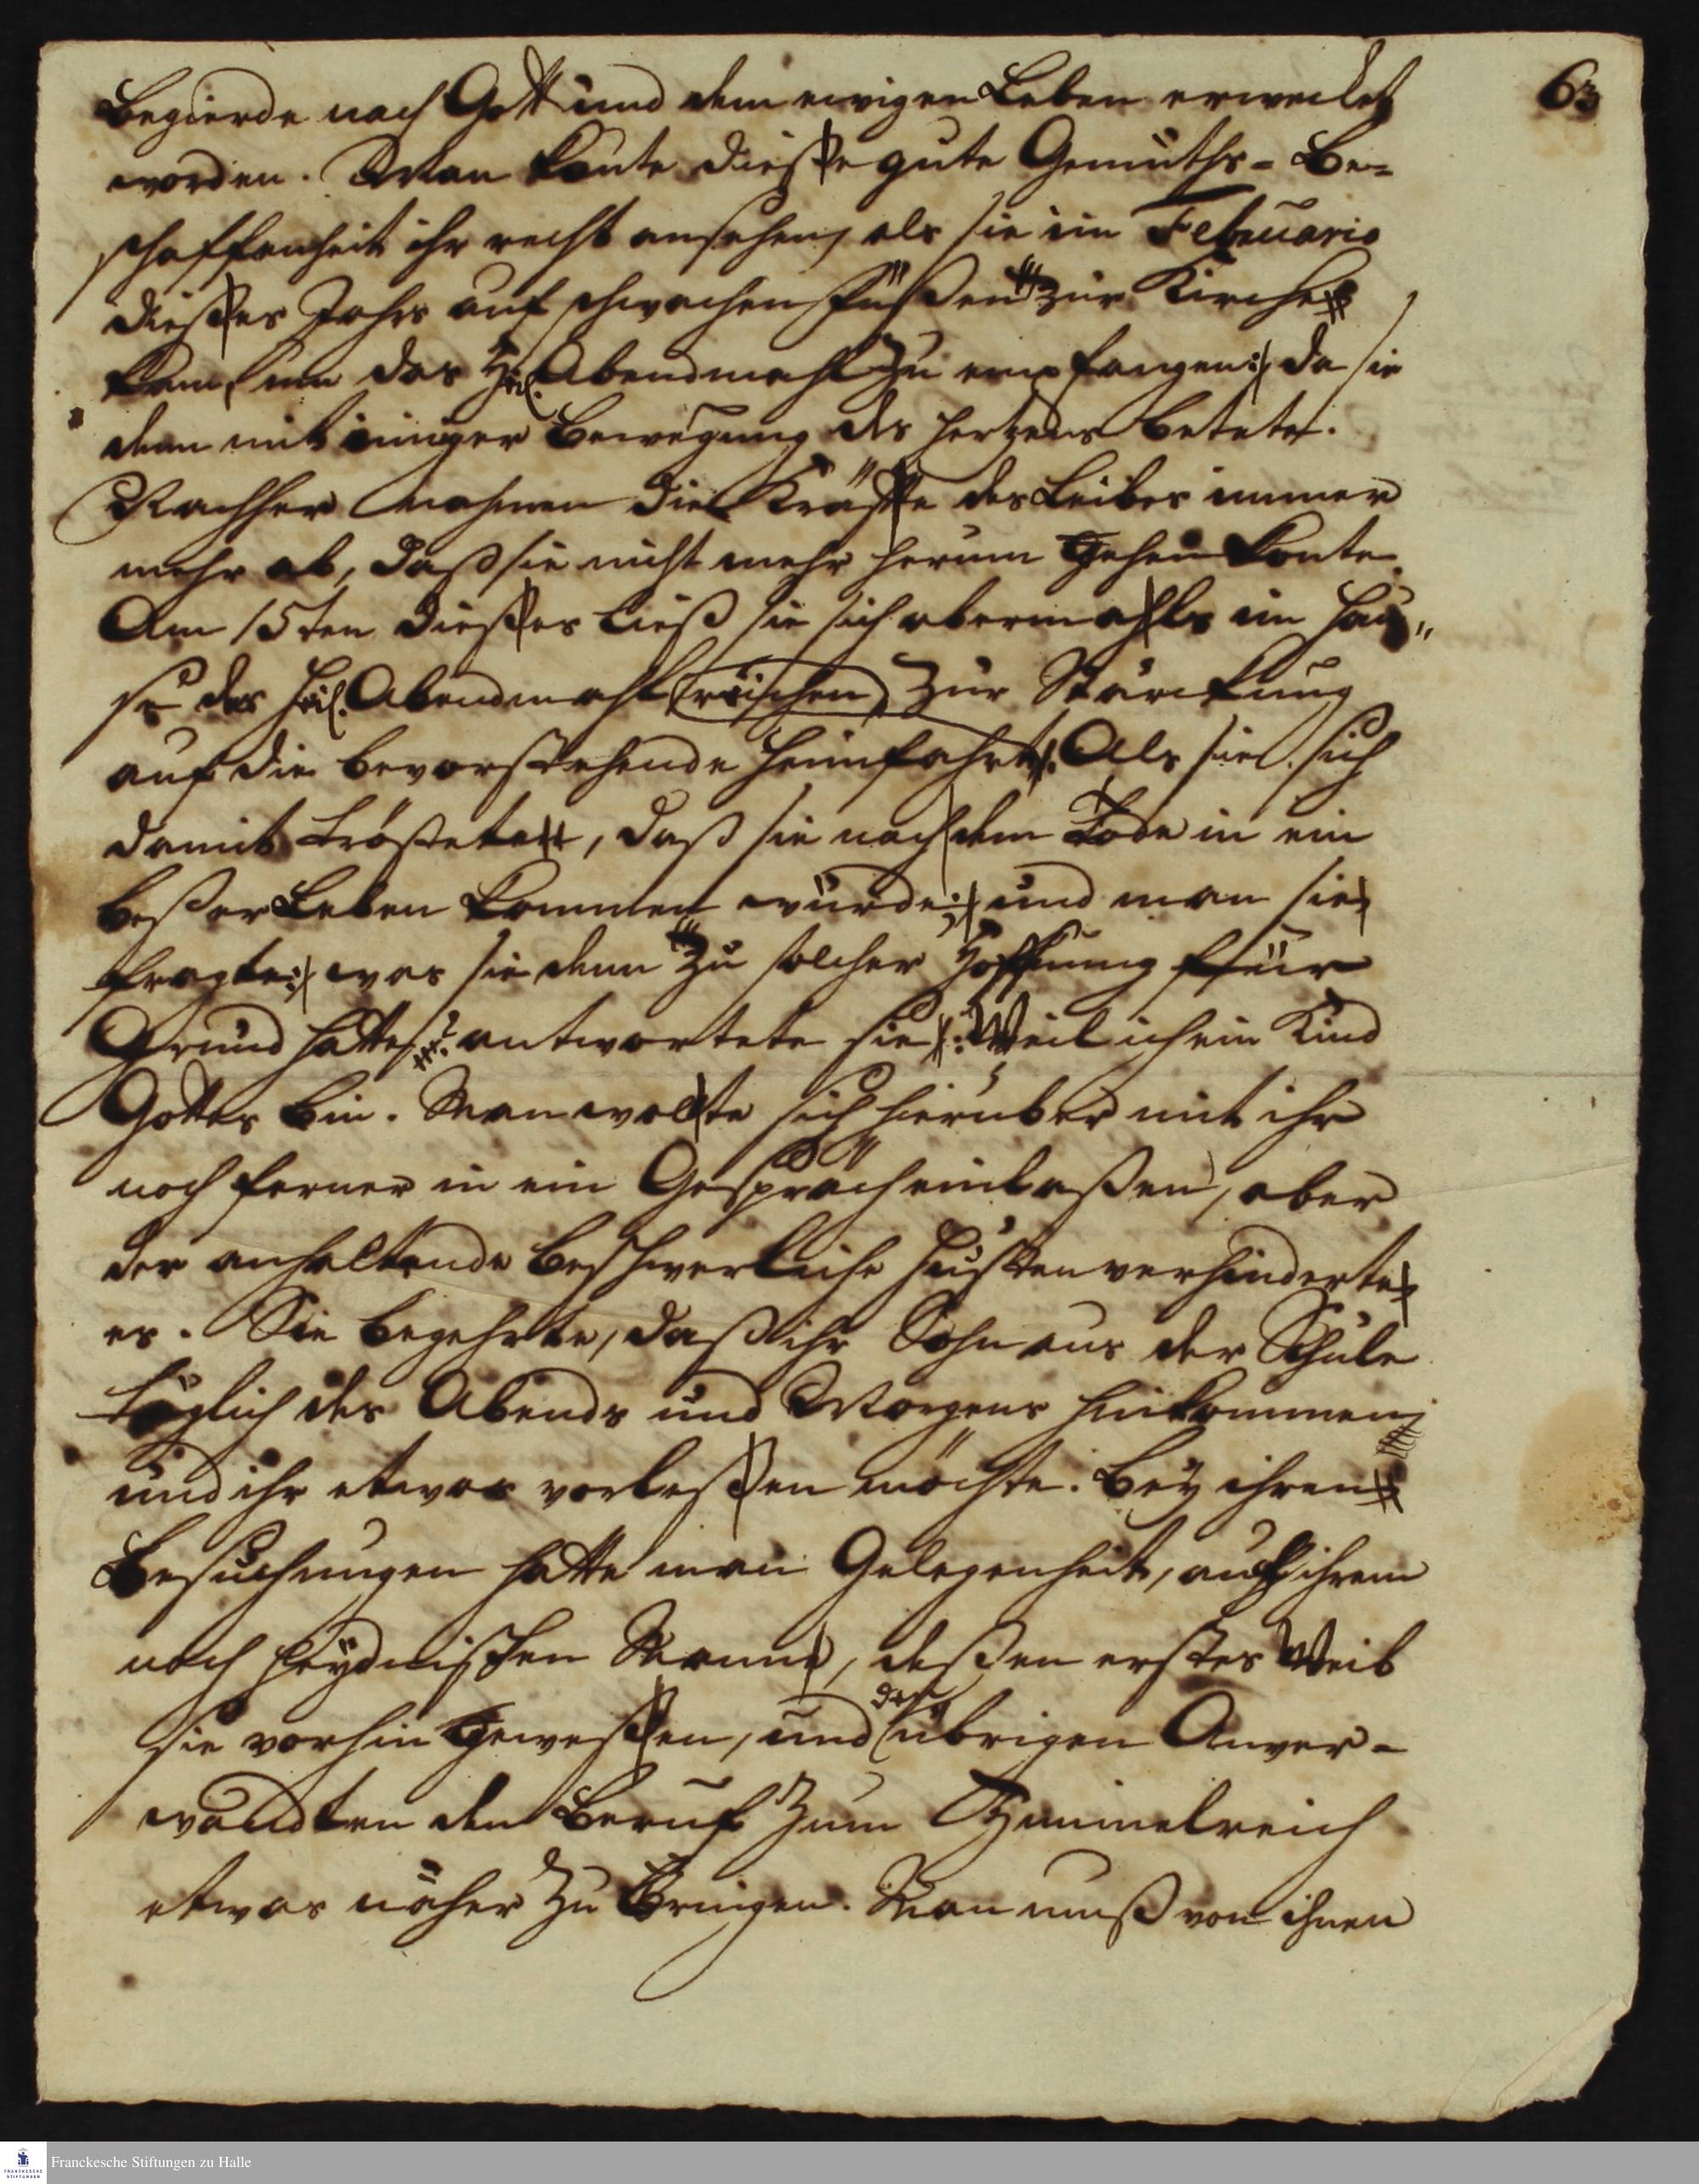 63
Begierde nach Gott und dem ewigen Leben erwecket
worden. Man konte diese gute Gemüths-Be-
schaffenheit ihr recht ansehen, als sie im Februario
dieses Jahrs auf schwachen Füßen zur Kirche
kam, um das Heil. Abendmahl zu empfangen; da sie
denn mit inniger Bewegung des Hertzens betete.
Nachher nahmen die Kräffte des Leibes immer
mehr ab, daß sie nicht mehr herum gehen konte.
Am 15ten dieses ließ sie sich abermahls im Hau„
se das Heil. Abendmahl reichen zur Stärckung
auf die bevorstehende Heimfahrt. Als sie sich
damit tröstete, daß sie nach dem Tode in ein
beßer Leben kommen würde; und man sie
fragte: was sie denn zu solcher Hoffnung für
Grund hätte? antwortete sie: Weil ich ein Kind
Gottes bin. Man wolte sich hierüber mit ihr
noch ferner in ein Gespräch einlaßen, aber
der anhaltende beschwerliche Husten verhinderte
es. Sie begehrte, daß ihr Sohn aus der Schule
täglich des Abends und Morgens hinkommen
und ihr etwas vorlesen möchte. Bey ihren
Besuchungen hatte man Gelegenheit, auch ihrem
noch heydnischen Mann, deßen erstes Weib
sie vorhin gewesen, und den übrigen Anver-
wandten den Beruf zum Himmelreich
etwas näher zu bringen. Man muß von ihnen
Franckesche Stiftungen zu Halle
FRANCKESCHE
STIFTUNGEN